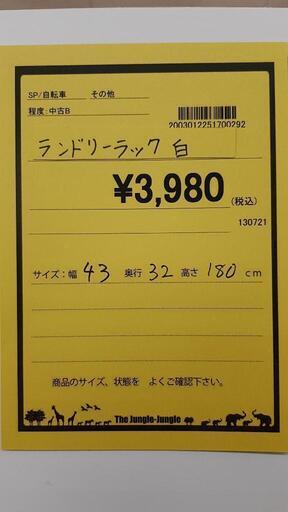 SP/自転車 その他
程度:中古B
2003012251700292
ランドリーラック 白
¥3,980(税込)
130721
サイズ:幅 43 奥行 32 高さ 180 cm
商品のサイズ、状態を よくご確認下さい。
The Jungle-Jungle